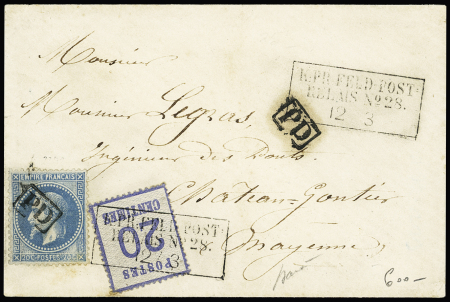 Monsieur
K.PR.FELD-POST-
RELAIS No 28.
12 3
PD
Monsieur Legras,
Ingénieur des Ponts
Chateau-Gontier
Mayenne
EMPIRE FRANÇAIS
PD
20c POSTES 20c
POSTES
20
CENTIMES
K.PR.FELD-POST-
RELAIS No 28.
12 3
600-